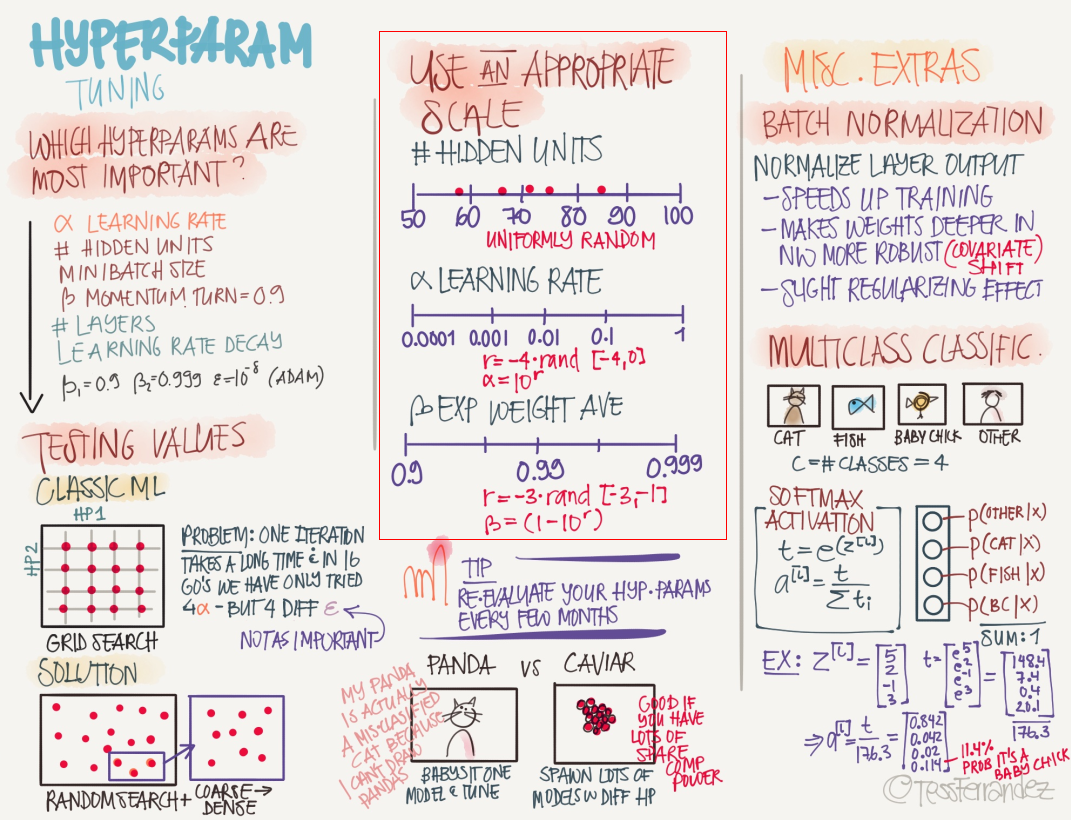 HYPERPARAM
TUNING
WHICH HYPERPARAMS ARE
MOST IMPORTANT?
α LEARNING RATE
# HIDDEN UNITS
MINIBATCH SIZE
β MOMENTUM TURN = 0.9
# LAYERS
LEARNING RATE DECAY
β₁ = 0.9 β₂ = 0.999 ε = 10⁻⁸ (ADAM)
TESTING VALUES
CLASSIC ML
HP1
HP2
GRID SEARCH
PROBLEM: ONE ITERATION
TAKES A LONG TIME & IN 16
GO'S WE HAVE ONLY TRIED
4α - BUT 4 DIFF ε
NOT AS IMPORTANT
SOLUTION
RANDOM SEARCH + COARSE →
DENSE
USE AN APPROPRIATE
SCALE
# HIDDEN UNITS
50 60 70 80 90 100
UNIFORMLY RANDOM
α LEARNING RATE
0.0001 0.001 0.01 0.1 1
r = -4·rand [-4,0]
α = 10ʳ
β EXP WEIGHT AVE
0.9 0.99 0.999
r = -3·rand [-3,-1]
β = (1-10ʳ)
TIP
RE-EVALUATE YOUR HYP.PARAMS
EVERY FEW MONTHS
PANDA VS CAVIAR
MY PANDA
IS ACTUALLY
A MISCLASSIFIED
CAT BECAUSE
I CANT DRAW
PANDAS
BABYSIT ONE
MODEL & TUNE
GOOD IF
YOU HAVE
LOTS OF
SPARE
COMP
POWER
SPAWN LOTS OF
MODELS W DIFF HP
MISC. EXTRAS
BATCH NORMALIZATION
NORMALIZE LAYER OUTPUT
- SPEEDS UP TRAINING
- MAKES WEIGHTS DEEPER IN
NW MORE ROBUST (COVARIATE)
SHIFT
- SLIGHT REGULARIZING EFFECT
MULTICLASS CLASSIFIC.
CAT FISH BABY CHICK OTHER
C = # CLASSES = 4
SOFTMAX
ACTIVATION
t = e^(z^[L])
a^[L] = t / Σ tᵢ
P(OTHER|X)
P(CAT|X)
P(FISH|X)
P(BC|X)
SUM: 1
EX: Z^[L] = [5 2 -1 3] t = [e⁵ e² e⁻¹ e³] = [148.4 7.4 0.4 20.1]
176.3
⇒ a^[L] = t / 176.3 = [0.842 0.042 0.02 0.114]
11.4%
PROB IT'S A
BABY CHICK
©TessFerrandez